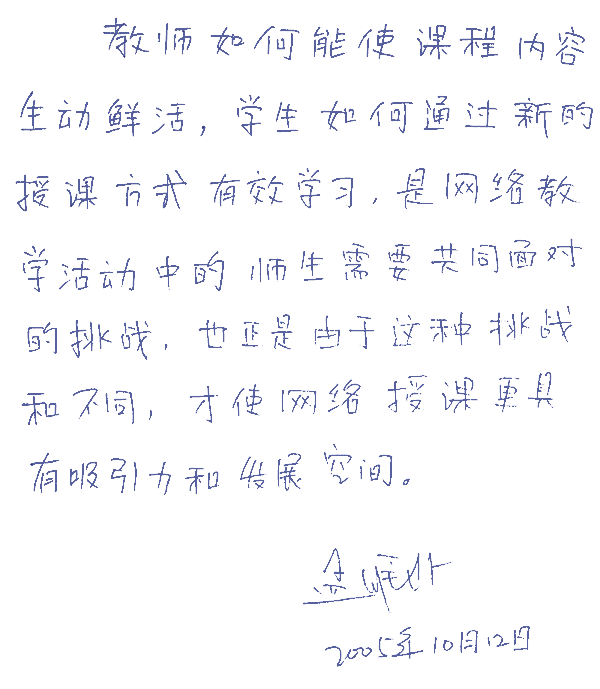 教师如何能使课程内容
生动鲜活，学生如何通过新的
授课方式有效学习，是网络教
学活动中的师生需要共同面对
的挑战，也正是由于这种挑战
和不同，才使网络授课更具
有吸引力和发展空间。
2005年10月12日